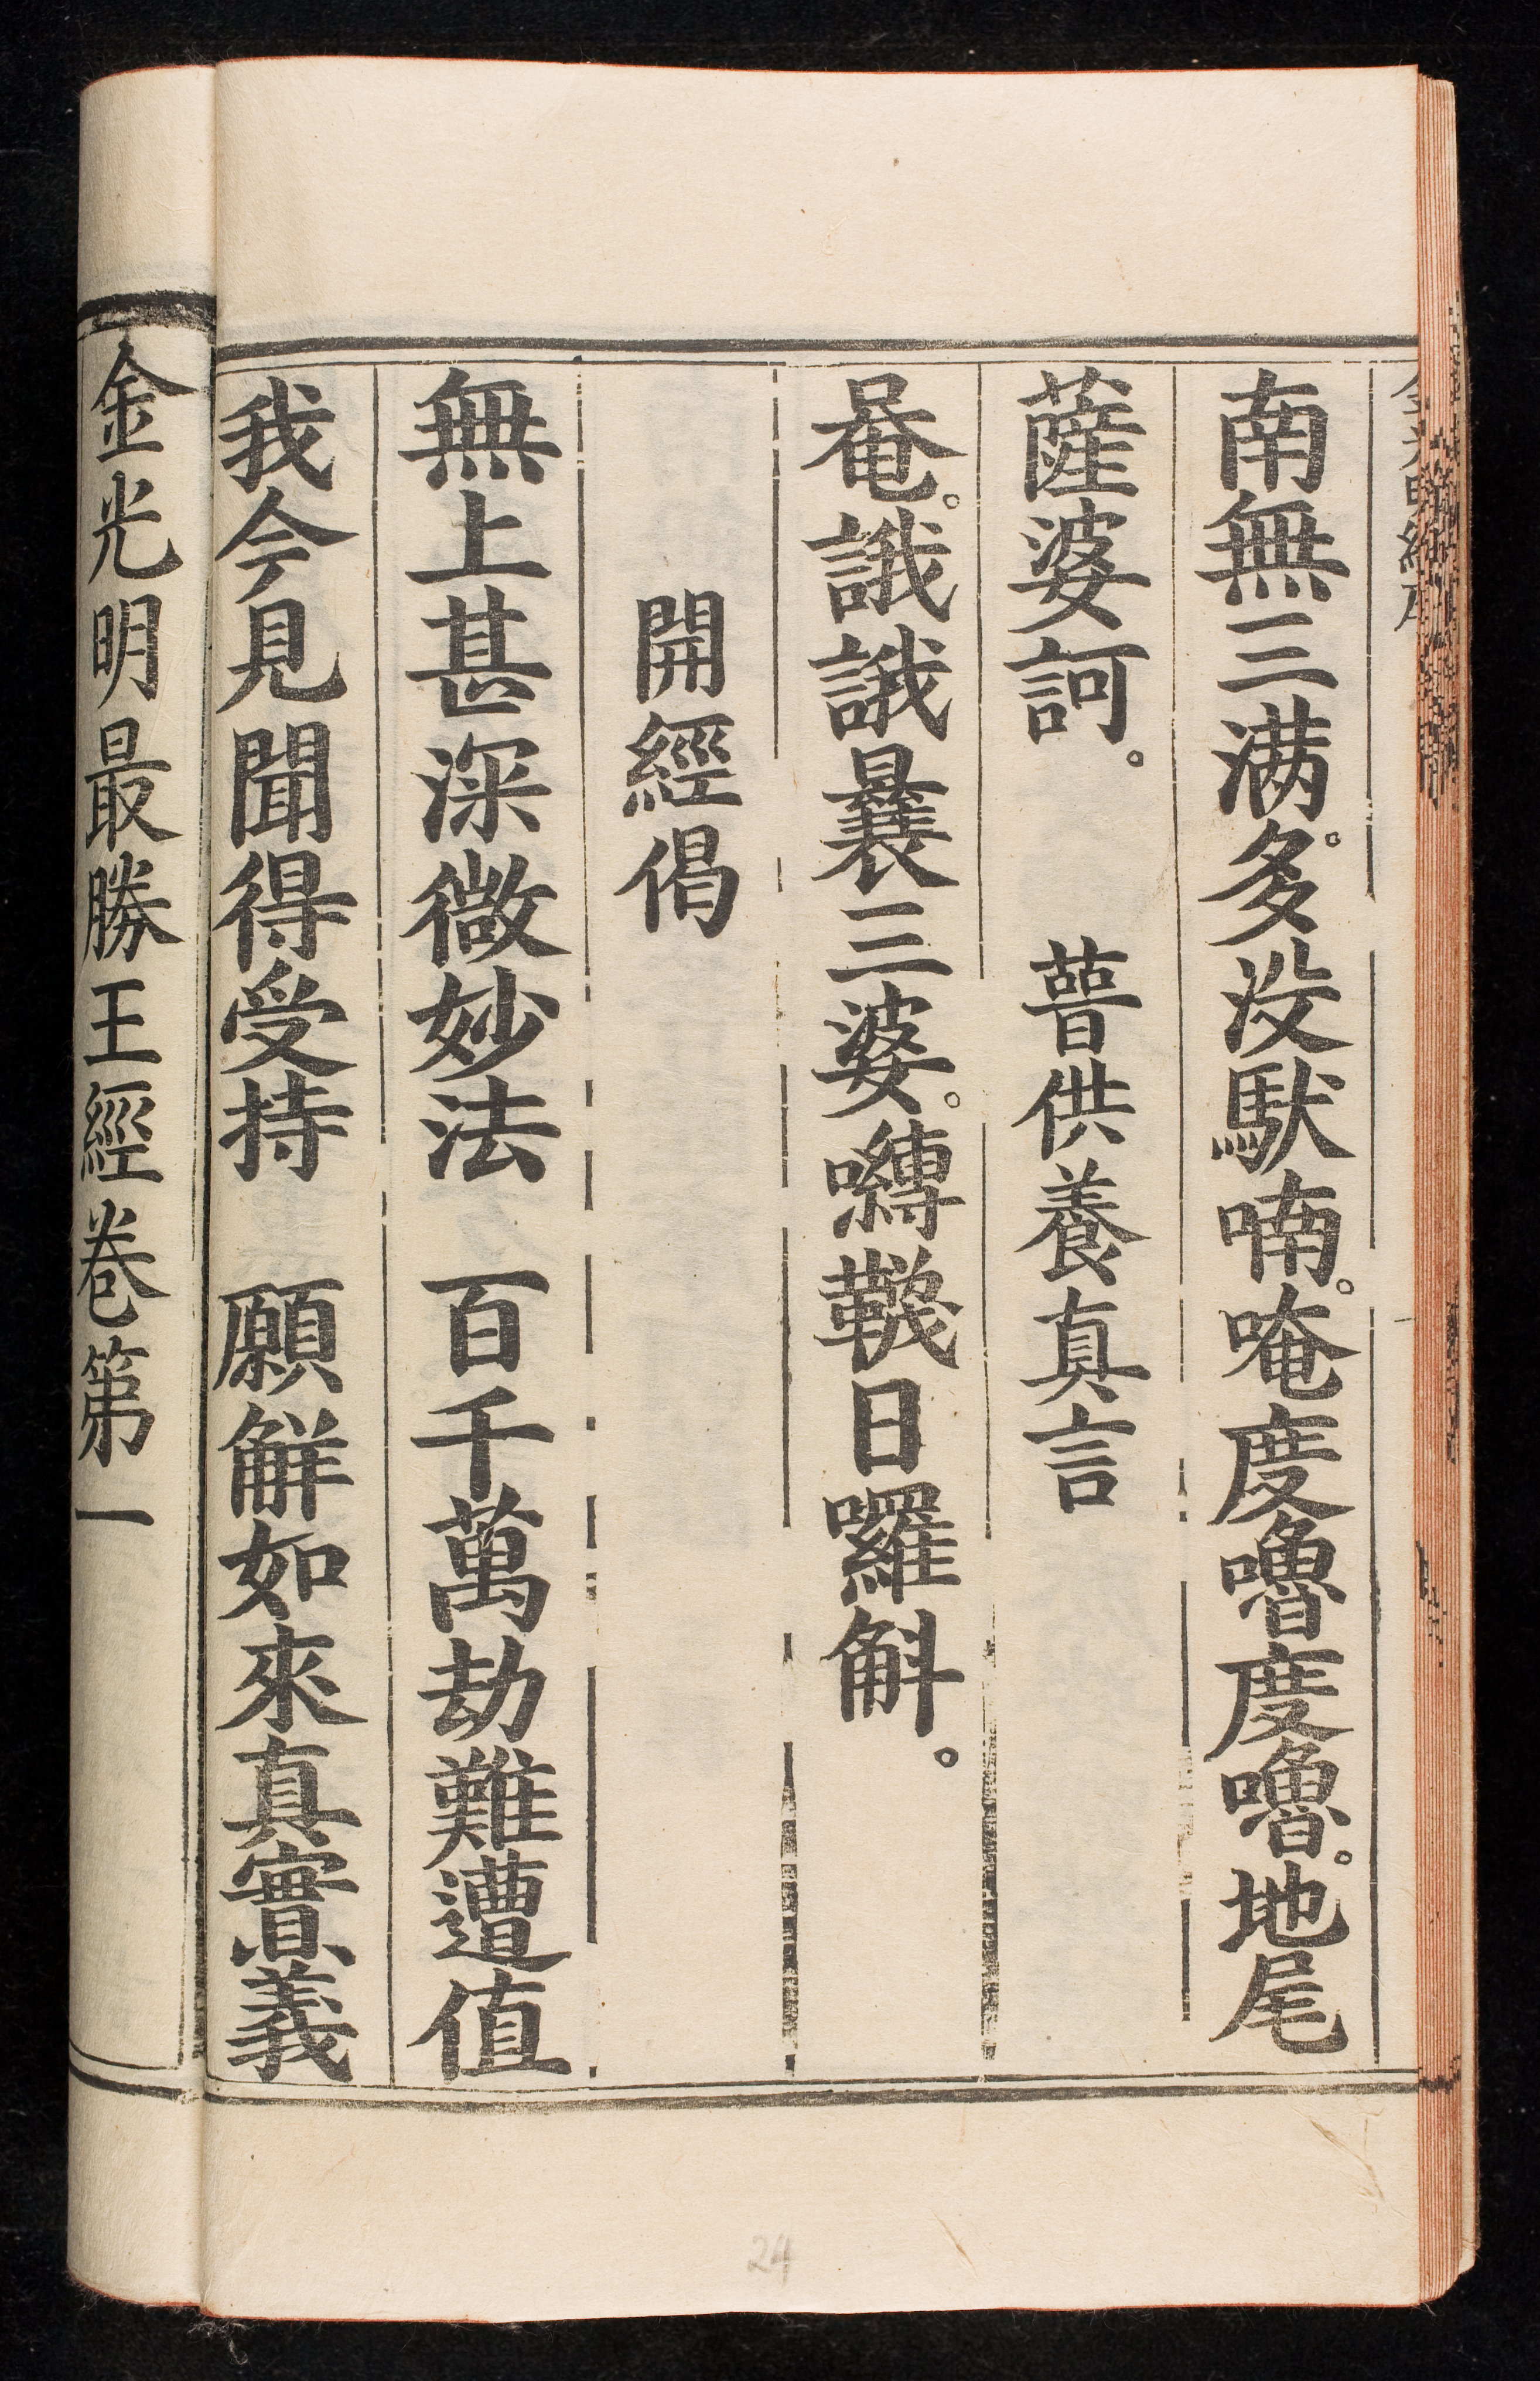 南無三滿。多沒馱喃。唵度嚕度嚕。地尾
薩婆訶。　普供養真言
唵。誐誐曩三婆。嚩韈日囉斛。
開經偈
無上甚深微妙法　百千萬劫難遭值
我今見聞得受持　願解如來真實義
金光明最勝王經卷第一
24